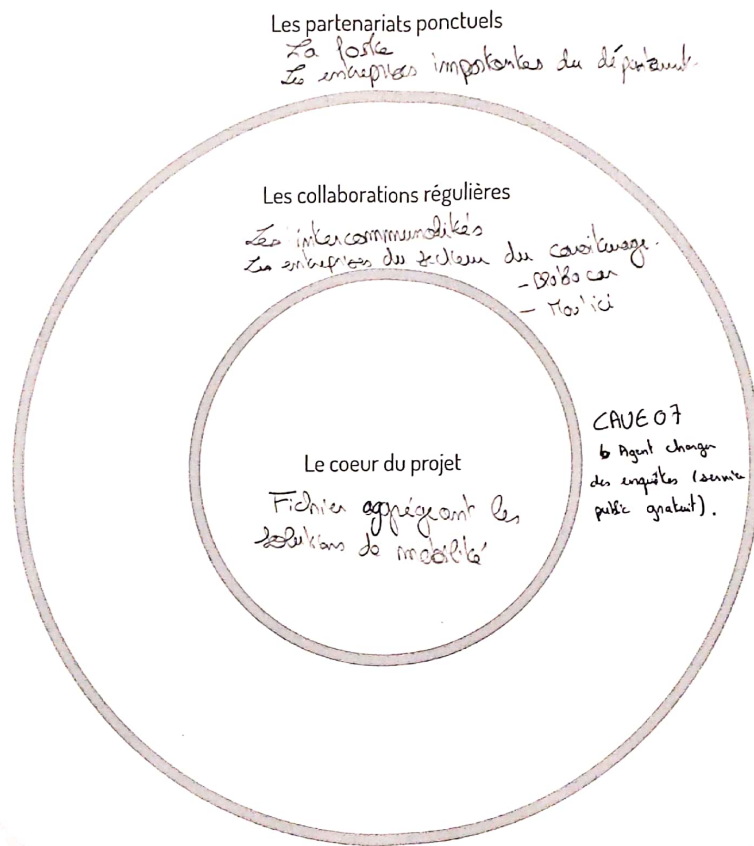 Les partenariats ponctuels
La Poste
Les entreprises importantes du département.
Les collaborations régulières
Les intercommunalités
Les entreprises du secteur du covoiturage.
- Blablacar
- Mov'ici
CAUE 07
Agent charger
des enquêtes (service
public gratuit).
Le coeur du projet
Fichier aggrégeant les
solutions de mobilité